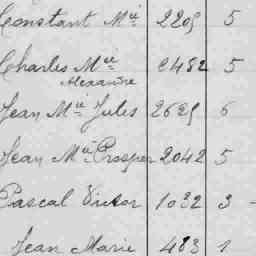 Constant Mie 2209 5
Charles Mie 2482 5
Alexandre
Jean Mie Jules 2629 6
Jean Mie Prosper 2042 5
Pascal Victor 1032 3
Jean Marie 483 1